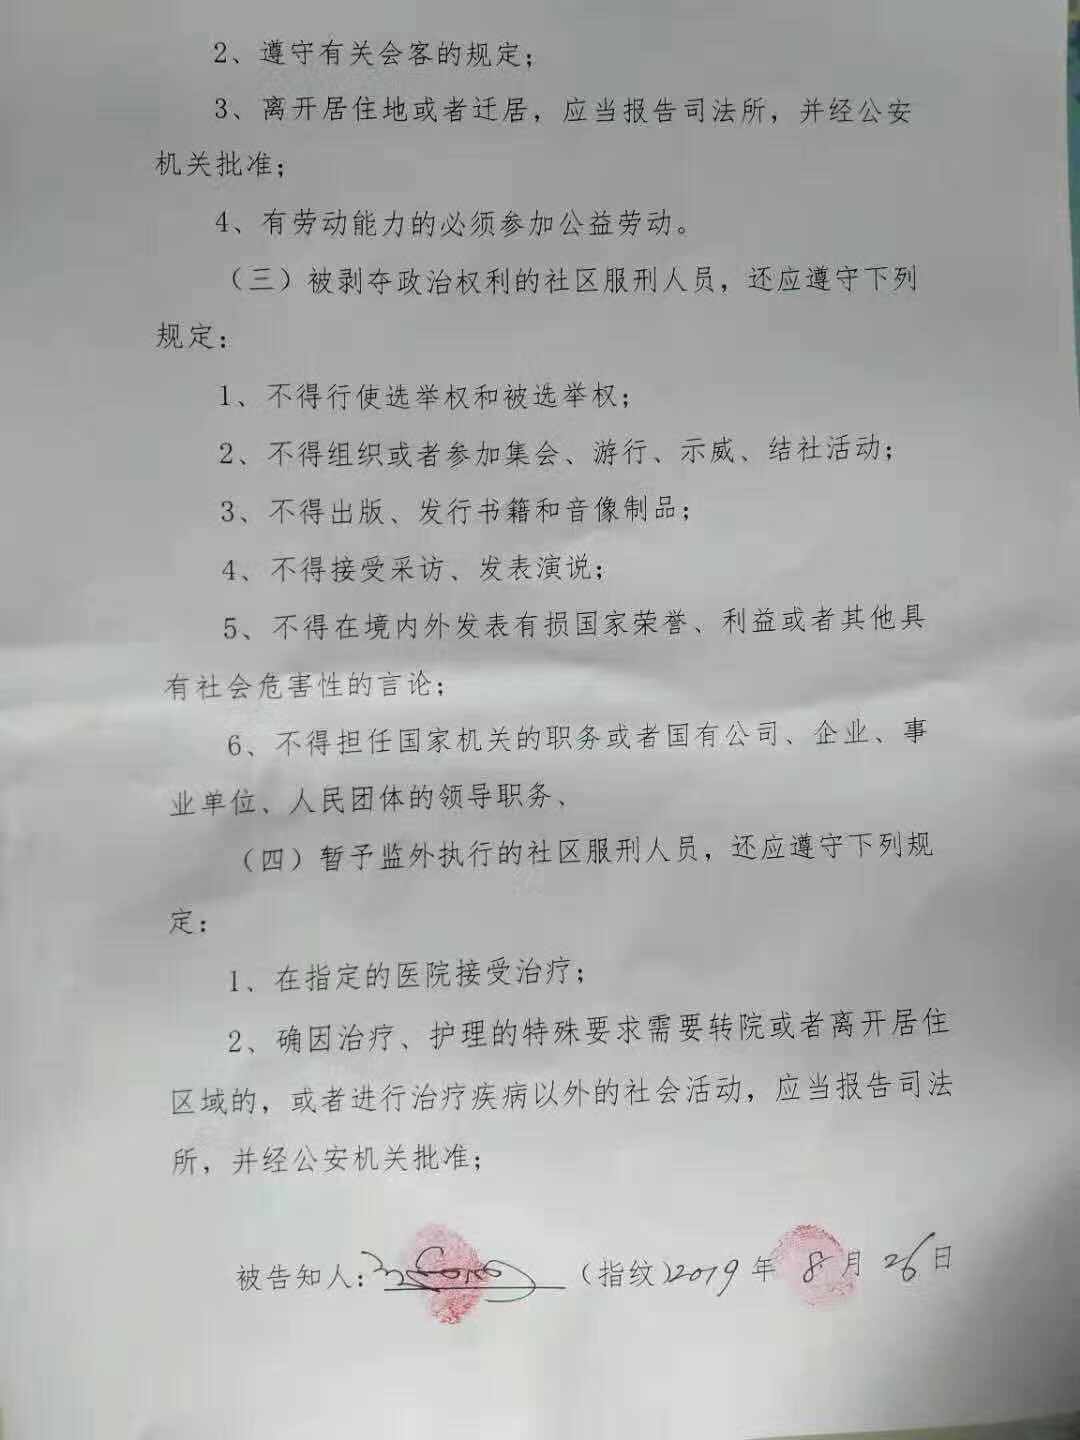 2、遵守有关会客的规定；
3、离开居住地或者迁居，应当报告司法所，并经公安
机关批准；
4、有劳动能力的必须参加公益劳动。
（三）被剥夺政治权利的社区服刑人员，还应遵守下列
规定：
1、不得行使选举权和被选举权；
2、不得组织或者参加集会、游行、示威、结社活动；
3、不得出版、发行书籍和音像制品；
4、不得接受采访、发表演说；
5、不得在境内外发表有损国家荣誉、利益或者其他具
有社会危害性的言论；
6、不得担任国家机关的职务或者国有公司、企业、事
业单位、人民团体的领导职务、
（四）暂予监外执行的社区服刑人员，还应遵守下列规
定：
1、在指定的医院接受治疗；
2、确因治疗、护理的特殊要求需要转院或者离开居住
区域的，或者进行治疗疾病以外的社会活动，应当报告司法
所，并经公安机关批准；
被告知人： （指纹）2019年 8月 26日